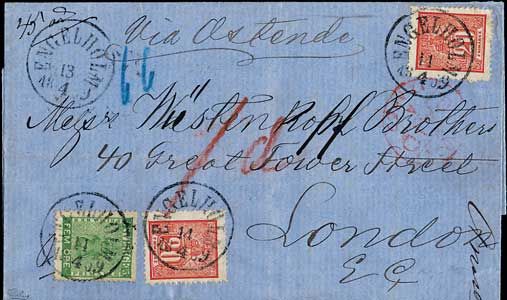 Via Ostende
ENGELHOLM
13
4
ENGELHOLM
11
4
59
Messrs Westenholz Brothers
40 Great Tower Street
London
E.C.
ENGELHOLM
11
4
59
FEM ÖRE
ENGELHOLM
11
4
59